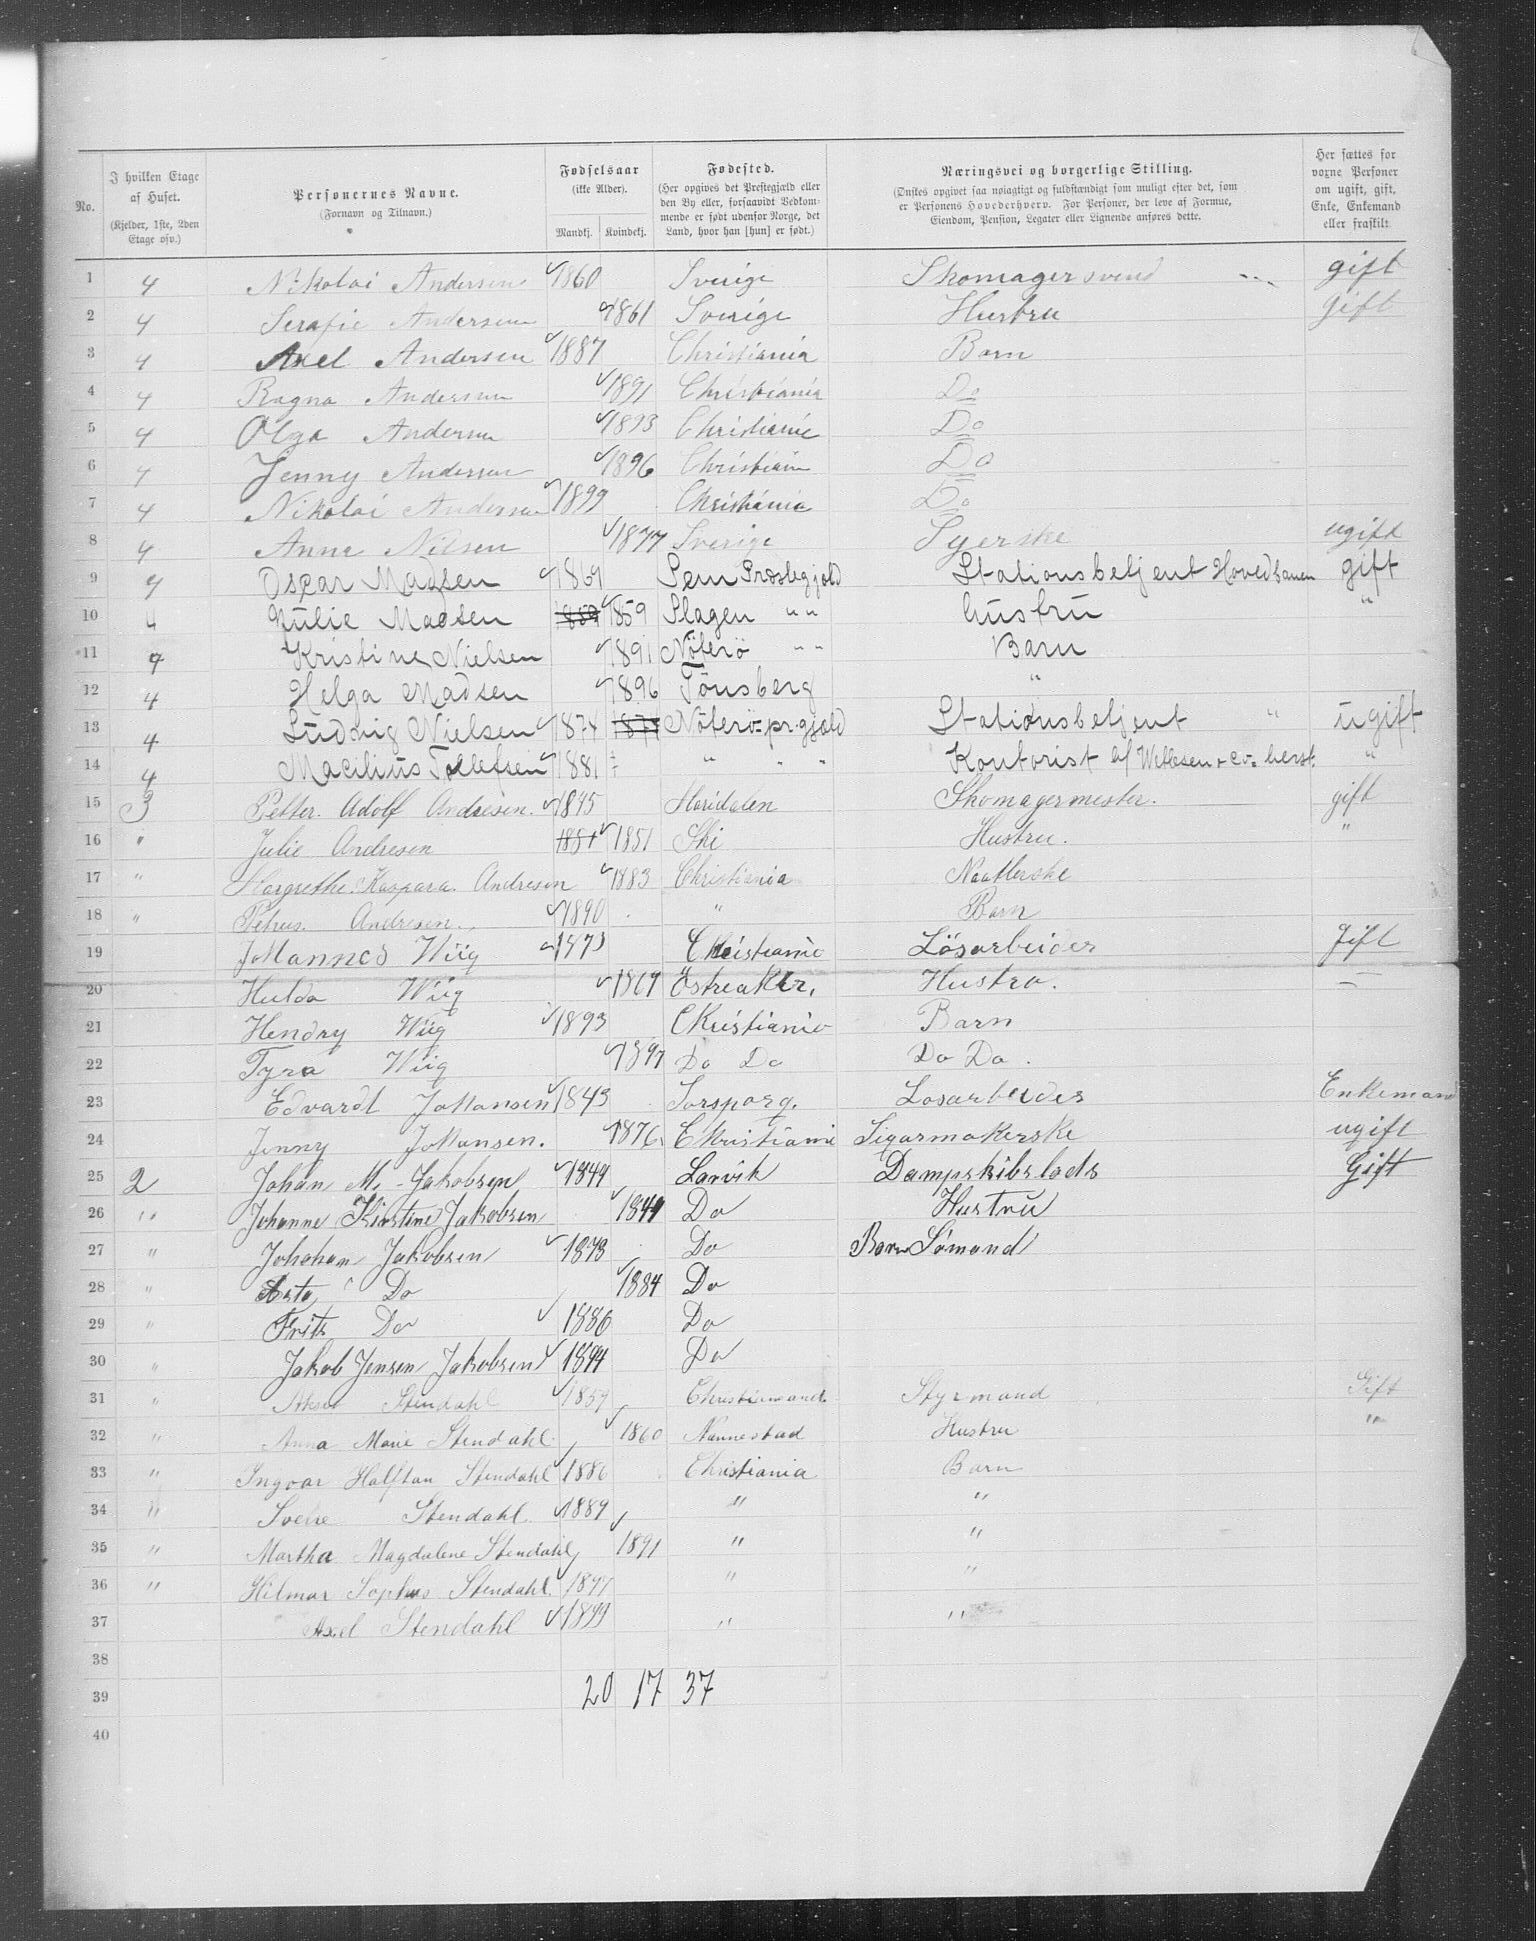 No. | I hvilken Etage af Huset. (Kjelder, 1ste, 2den Etage osv.) | Personernes Navne. (Fornavn og Tilnavn.) | Fødselsaar (ikke Alder). Mandkj. Kvindekj. | Fødested. (Her opgives det Prestegjæld eller den By eller, forsaavidt Vedkommende er født udenfor Norge, det Land, hvor han [hun] er født.) | Næringsvei og borgerlige Stilling. (Ønskes opgivet saa nøiagtigt og fuldstændigt som muligt efter det, som er Personens Hovederhverv. For Personer, der leve af Formue, Eiendom, Pension, Legater eller Lignende anføres dette. | Her sættes for voxne Personer om ugift, gift, Enke, Enkemand eller fraskilt.
1 4 Nikolai Andersen 1860 Sverige Skomagersvend gift
2 4 Serafie Andersen 1861 Sverige Hustru gift
3 4 Axel Andersen 1887 Christiania Barn
4 4 Ragna Andersen 1891 Christiania Do
5 4 Olga Andersen 1893 Christiania Do
6 4 Jenny Andersen 1896 Christiania Do
7 4 Nikolai Andersen 1899 Christiania Do
8 4 Anna Nilsen 1877 Sverige Syerske ugift
9 4 Oscar Madsen 1869 Sem Prestegjæld Stationsbetjent Hovedbanen gift
10 4 Julie Madsen 1859 1859 Slagen " " hustru "
11 4 Kristine Nielsen 1891 Nöterö " " Barn
12 4 Helga Madsen 1896 Tönsberg "
13 4 Ludvig Nielsen 1874 1874 Nöterö pr.gjæld Stationsbetjent " ugift
14 4 Tollefsen 1881 " " " Kontorist "
15 3 Petter Adolf Andresen. 1845 Maridalen Skomagermester. gift
16 " Julie Andresen 1851 1851 Ski Hustru. "
17 " Margrethe Kaspara Andresen 1883 Christiania Naatlerske
18 " Petrus Andresen. 1890 " Barn
19 Johannes Wiig 1873 Christiania Lösarbeider Gift
20 Hulda Wiig 1869 Östreaker. Hustro. –
21 Hendry Wiig 1893 Christiania Barn
22 Tyra Wiig 1897 Do Do Do Do.
23 Edvardt Johansen 1843 Sarsporg. Losarbeider Enkemand
24 Jenny Johansen. 1876. Christiania Sigarmakerske ugift
25 2 Johan M. Jakobsen 1849 Larvik Dampskibslods Gift
26 " Johanne Kirstine Jakobsen 1849 Do Hustru
27 " Johahan Jakobsen 1878 Do Barn Sömand
28 " Asta Do 1884 Do
29 " Frits Do 1886 Do
30 " Jakob Jensen Jakobsen 1894 Do
31 " Stendahl 1859 Christiansand Styrmand Gift
32 " Anna Marie Stendahl. 1860 Nannestad Hustru "
33 " Ingvar Halftan Stendahl 1886 Christiania Barn
34 " Sverre Stendahl 1889 " "
35 " Martha Magdalene Stendahl 1891 " "
36 " Hilmar Sophus Stendahl. 1897 " "
37 Axel Stendahl 1899 " "
38
39 20 17 37
40